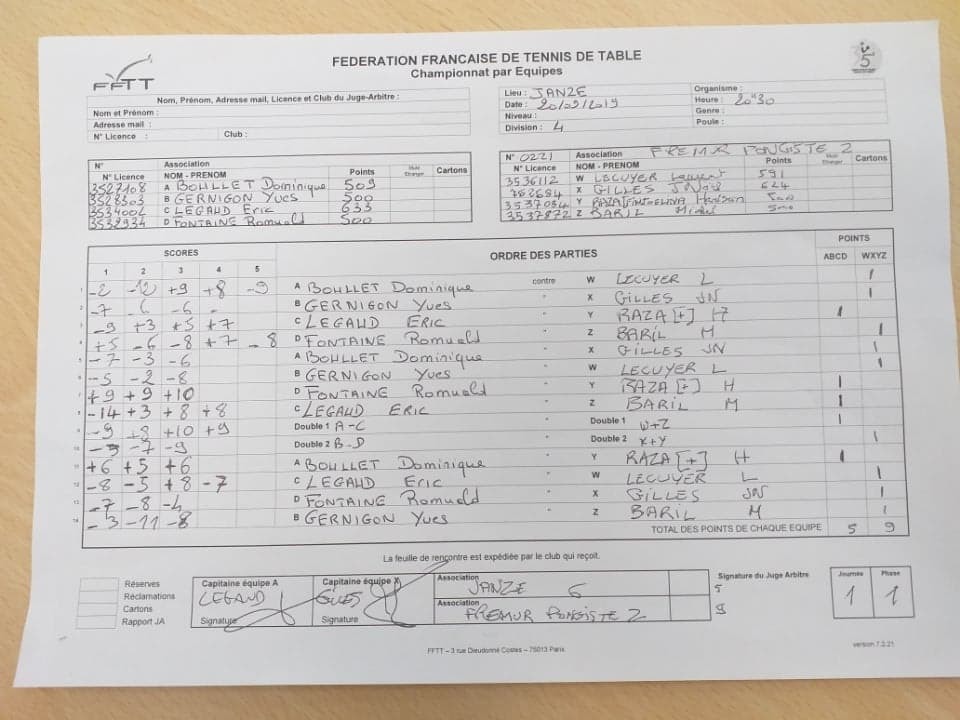 FFTT
FEDERATION FRANCAISE DE TENNIS DE TABLE
Championnat par Equipes
Nom, Prénom, Adresse mail, Licence et Club du Juge-Arbitre :
Nom et Prénom :
Adresse mail :
N° Licence : Club :
Lieu : JANZE Organisme :
Date : 20/09/2019 Heure : 20H30
Niveau : Genre :
Division : 4 Poule :
N° Association
N° Licence NOM - PRENOM Points Muté Etranger Cartons
3527108 A BOHLLET Dominique 509
3528303 B GERNIGON Yves 500
3534002 C LEGAUD Eric 633
3532934 D FONTAINE Romuald 500
N° 0221 Association FREMUR PONGISTE 2
N° Licence NOM - PRENOM Points Muté Etranger Cartons
3536112 W LECUYER Laurent 591
782684 X GILLES 624
3537084 Y 500
3537872 Z BARIL Michel 500
SCORES ORDRE DES PARTIES POINTS
1 2 3 4 5 ABCD WXYZ
1 -2 -12 +9 +8 -9 A BOHLLET Dominique contre W LECUYER L 1
2 -7 -6 -6 - B GERNIGON Yves " X GILLES JN 1
3 -9 +3 +5 +7 C LEGAUD ERIC " Y RAZA [+] H 1
4 +5 -6 -8 +7 -8 D FONTAINE Romuald " Z BARIL M 1
5 -7 -3 -6 A BOHLLET Dominique " X GILLES JN 1
6 -5 -2 -8 B GERNIGON Yves " W LECUYER L 1
7 +9 +9 +10 D FONTAINE Romuald " Y RAZA [+] H 1
8 -14 +3 +8 +8 C LEGAUD ERIC " Z BARIL M 1
9 -9 +8 +10 +9 Double 1 A-C " Double 1 W+Z 1
10 -7 -9 Double 2 B-D " Double 2 X+Y 1
11 +6 +5 +6 A BOHLLET Dominique " Y RAZA [+] H 1
12 -8 -5 +8 -7 C LEGAUD Eric " W LECUYER L 1
13 -7 -8 -4 D FONTAINE Romuald " X GILLES JN 1
14 -3 -11 -8 B GERNIGON Yves " Z BARIL M 1
TOTAL DES POINTS DE CHAQUE EQUIPE 5 9
La feuille de rencontre est expédiée par le club qui reçoit.
Réserves
Réclamations
Cartons
Rapport JA
Capitaine équipe A
LEGAUD
Signature
Capitaine équipe X
GILLES
Signature
Association JANZE 6
Association FREMUR PONGISTE 2
Signature du Juge Arbitre
5
9
Journée Phase
1 1
FFTT – 3 rue Dieudonné Costes – 75013 Paris
version 7.3.21